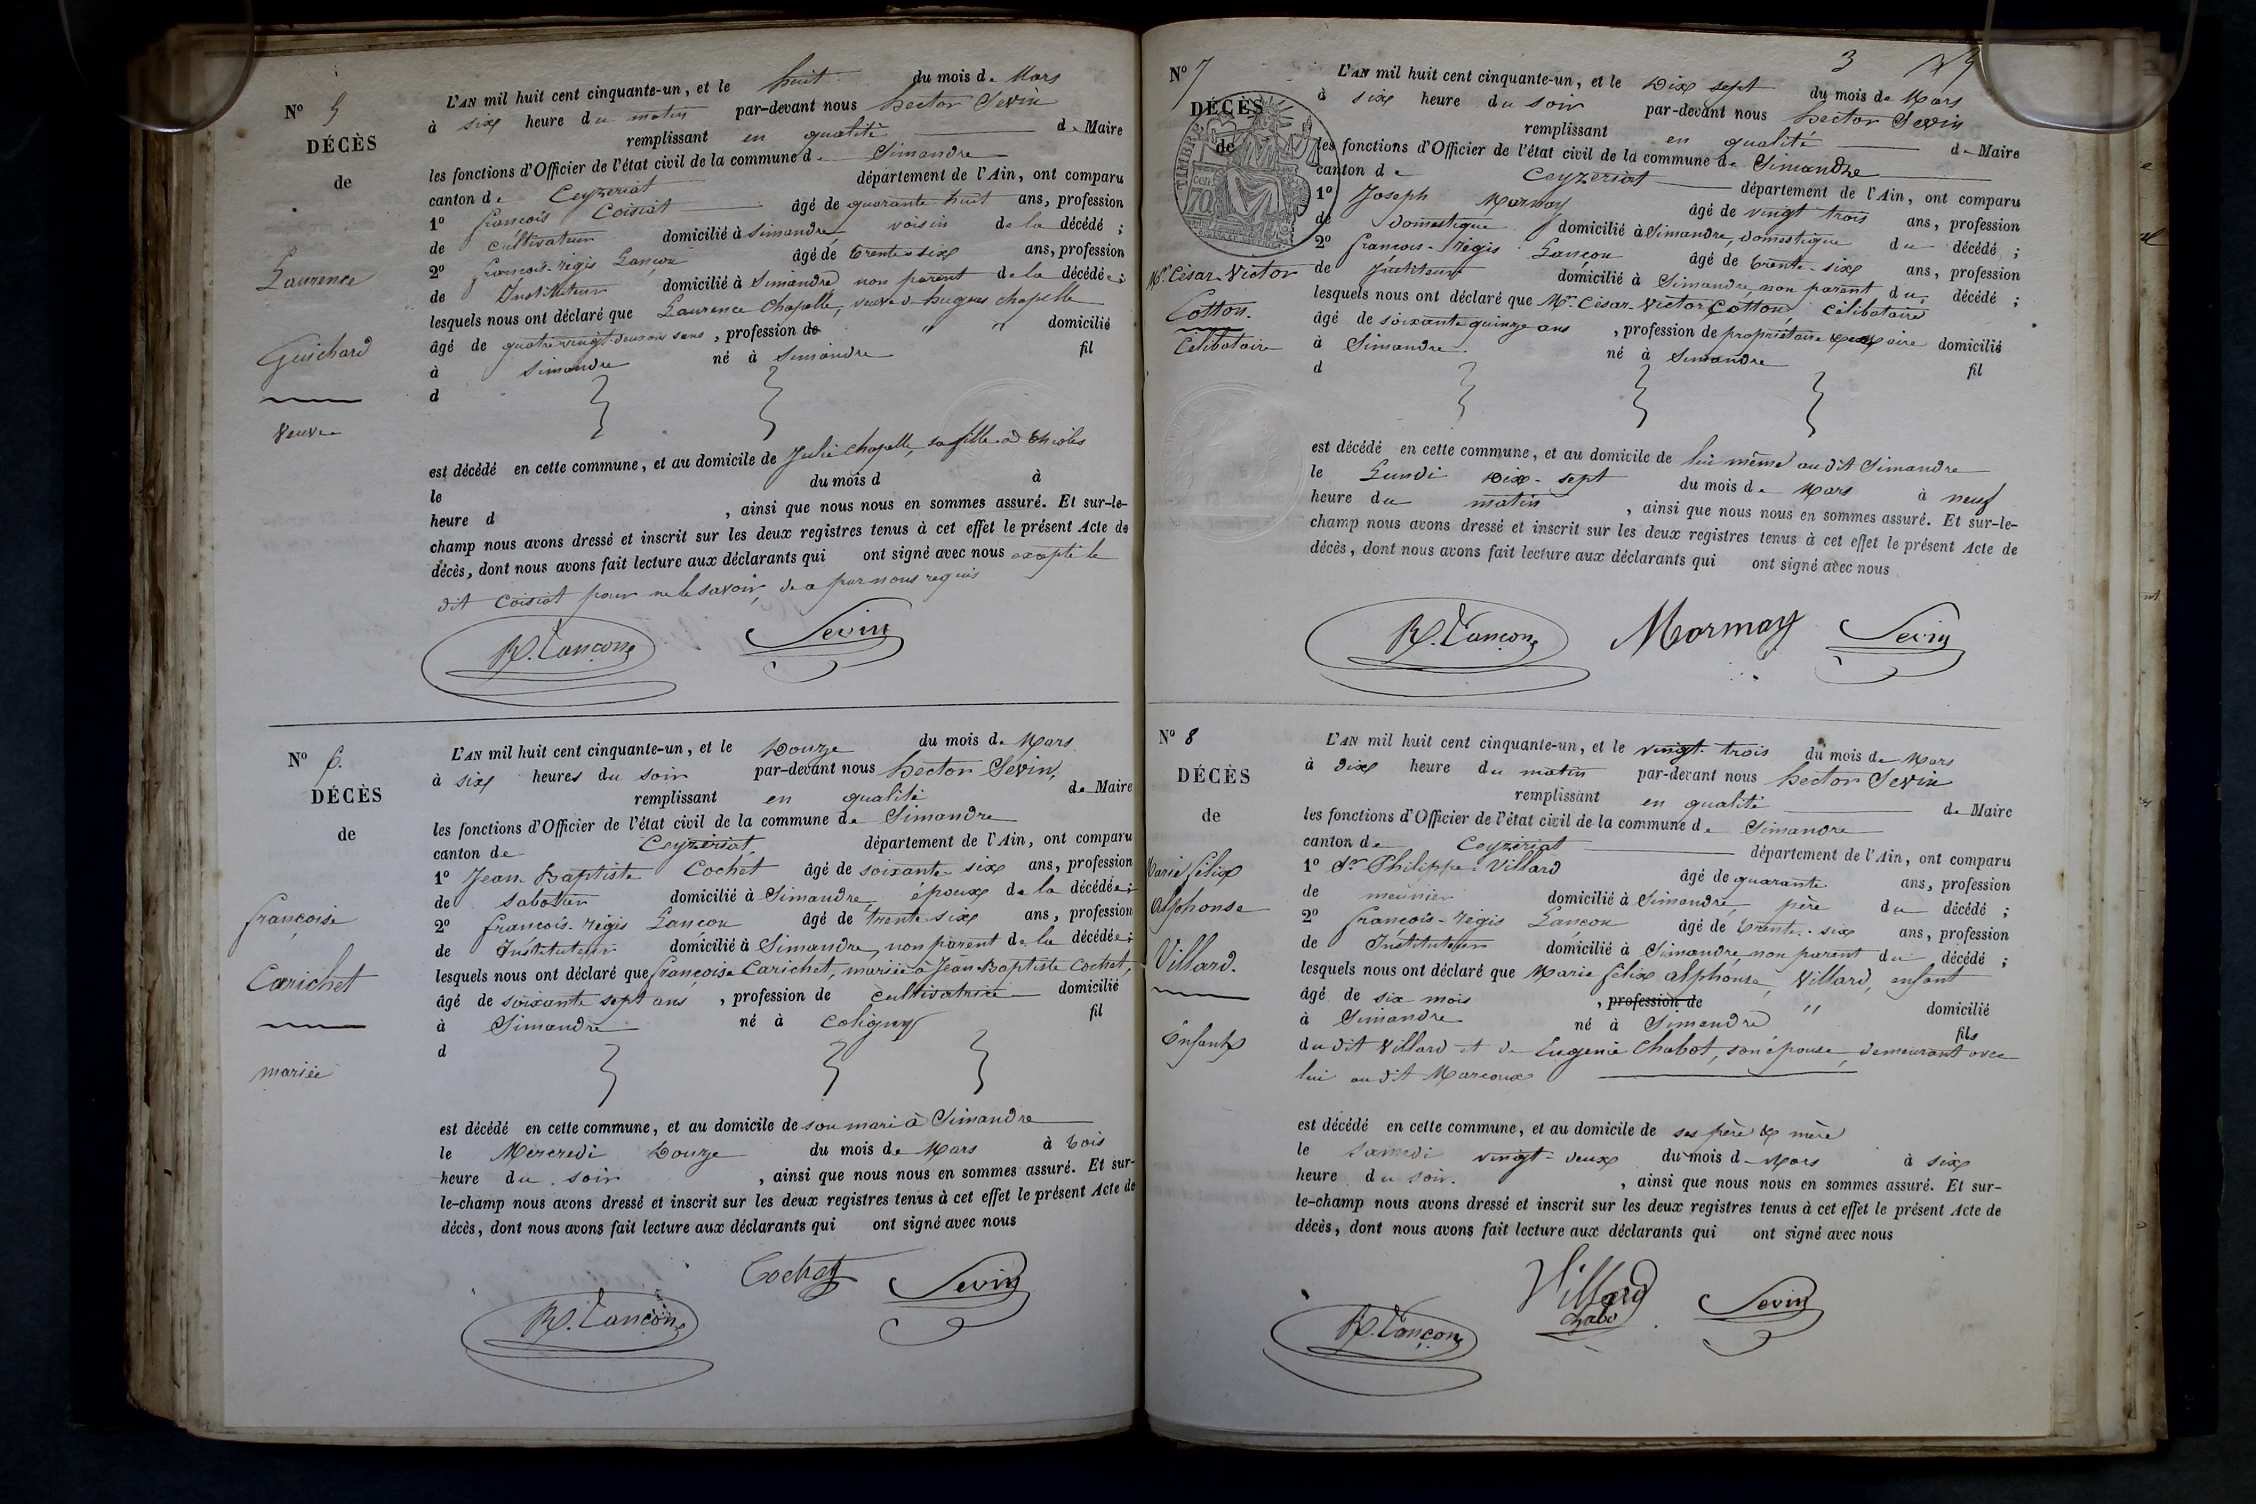 N° 5
DÉCÈS
de
Laurence
Guichard
Veuve
L'AN mil huit cent cinquante-un, et le huit du mois de Mars
à six heure du matin par-devant nous hector Sevin
remplissant en qualité de Maire
les fonctions d'Officier de l'état civil de la commune de Simandre
canton de Ceyzeriat département de l'Ain, ont comparu
1° françois Coisiat âgé de quarante huit ans, profession
de cultivateur domicilié à Simandre voisin de la décédé ;
2° françois-régis Lançon âgé de trente six ans, profession
de Instituteur domicilié à Simandre non parent de la décédée ;
lesquels nous ont déclaré que Laurence Chapelle, veuve de hugues chapelle
âgé de quatre vingt ans, profession de " " domicilié
à Simandre né à Simandre fil
d
est décédé en cette commune, et au domicile de Julie Chapelle, sa fille à
le du mois d à
heure d , ainsi que nous nous en sommes assuré. Et sur-le-
champ nous avons dressé et inscrit sur les deux registres tenus à cet effet le présent Acte de
décès, dont nous avons fait lecture aux déclarants qui ont signé avec nous excepté le
dit Coisiat pour ne le savoir, de a par nous requis
R. Lançon Sevin
N° 6.
DÉCÈS
de
françoise
Carichet
mariée
L'AN mil huit cent cinquante-un, et le Douze du mois de Mars
à six heures du soir par-devant nous hector Sevin,
remplissant en qualité de Maire
les fonctions d'Officier de l'état civil de la commune de Simandre
canton de Ceyzeriat, département de l'Ain, ont comparu
1° Jean-Baptiste Cochet âgé de soixante six ans, profession
de sabotier domicilié à Simandre, époux de la décédée ;
2° françois-régis Lançon âgé de trente six ans, profession
de Instituteur domicilié à Simandre, non parent de la décédée ;
lesquels nous ont déclaré que françoise Carichet, mariée à Jean-Baptiste Cochet,
âgé de soixante sept ans, profession de cultivatrice domicilié
à Simandre né à Coligny fil
d
est décédé en cette commune, et au domicile de son mari à Simandre
le Mercredi Douze du mois de Mars à trois
heure du soir , ainsi que nous nous en sommes assuré. Et sur-
le-champ nous avons dressé et inscrit sur les deux registres tenus à cet effet le présent Acte de
décès, dont nous avons fait lecture aux déclarants qui ont signé avec nous
Cochet Sevin
R. Lançon
3
N° 7
DÉCÈS
de
TIMBRE
cen. 70
Mr. César-Victor
Cotton.
Célibataire
L'AN mil huit cent cinquante-un, et le Dix sept du mois de Mars
à six heure du soir par-devant nous hector Sevin
remplissant en qualité de Maire
les fonctions d'Officier de l'état civil de la commune de Simandre
canton de Ceyzeriat département de l'Ain, ont comparu
1° Joseph Marmay âgé de vingt trois ans, profession
de Domestique domicilié à Simandre, domestique du décédé ;
2° françois-régis Lançon âgé de trente-six ans, profession
de Instituteur domicilié à Simandre, non parent du décédé ;
lesquels nous ont déclaré que Mr. César-Victor Cotton, célibataire
âgé de soixante quinze ans, profession de propriétaire domicilié
à Simandre né à Simandre fil
d
est décédé en cette commune, et au domicile de lui même au dit Simandre
le Lundi Dix-sept du mois de Mars à neuf
heure du matin , ainsi que nous nous en sommes assuré. Et sur-le-
champ nous avons dressé et inscrit sur les deux registres tenus à cet effet le présent Acte de
décès, dont nous avons fait lecture aux déclarants qui ont signé avec nous
R. Lançon Marmay Sevin
N° 8
DÉCÈS
de
Marie félix
Alphonse
Villard.
Enfant
L'AN mil huit cent cinquante-un, et le vingt-trois du mois de Mars
à Dix heure du matin par-devant nous hector Sevin
remplissant en qualité de Maire
les fonctions d'Officier de l'état civil de la commune de Simandre
canton de Ceyzériat département de l'Ain, ont comparu
1° Sr. Philippe Villard âgé de quarante ans, profession
de meunier domicilié à Simandre, père du décédé ;
2° françois-régis Lançon âgé de trente-six ans, profession
de Instituteur domicilié à Simandre, non parent du décédé ;
lesquels nous ont déclaré que Marie félix alphonse, Villard, enfant
âgé de six mois , profession de " domicilié
à Simandre né à Simandre fils
du dit Villard et de Eugenie Chabot, son épouse, demeurant avec
lui au dit Marcoux
est décédé en cette commune, et au domicile de ses père & mère
le Samedi vingt-deux du mois de Mars à six
heure du soir. , ainsi que nous nous en sommes assuré. Et sur-
le-champ nous avons dressé et inscrit sur les deux registres tenus à cet effet le présent Acte de
décès, dont nous avons fait lecture aux déclarants qui ont signé avec nous
Villard
R. Lançon Sevin